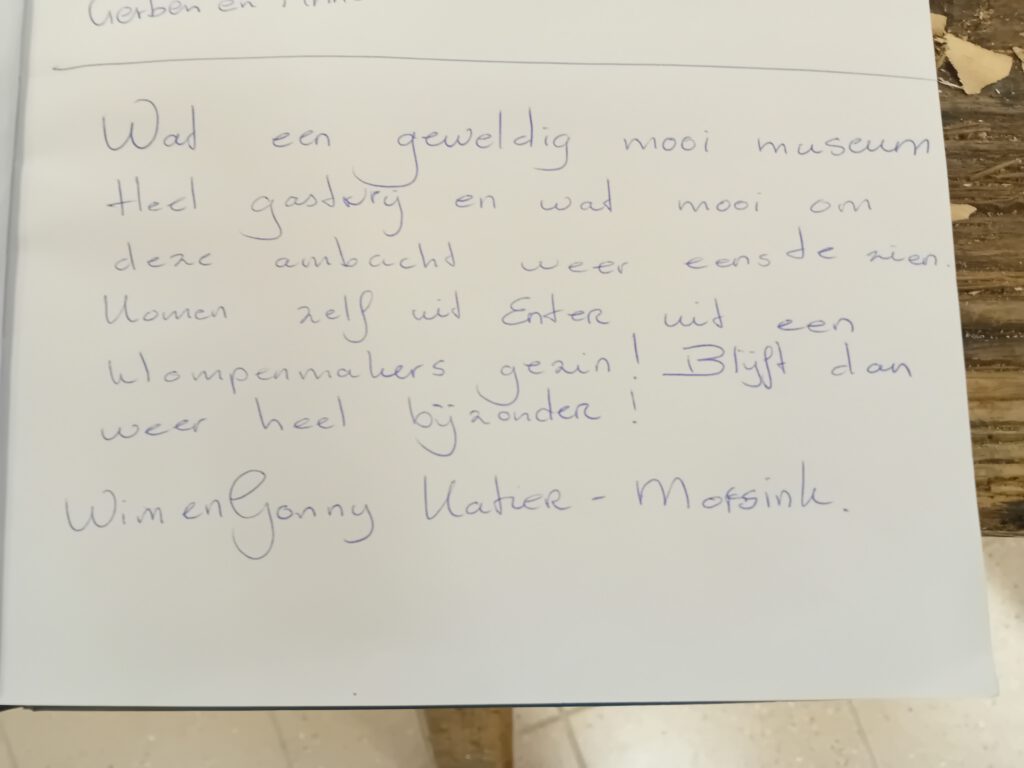 Gerben en
Wat een geweldig mooi museum
Heel gastvrij en wat mooi om
deze ambacht weer eens te zien.
Komen zelf uit Enter uit een
klompenmakers gezin! Blijft dan
weer heel bijzonder!
Wim en Gonny Katier - Morsink.